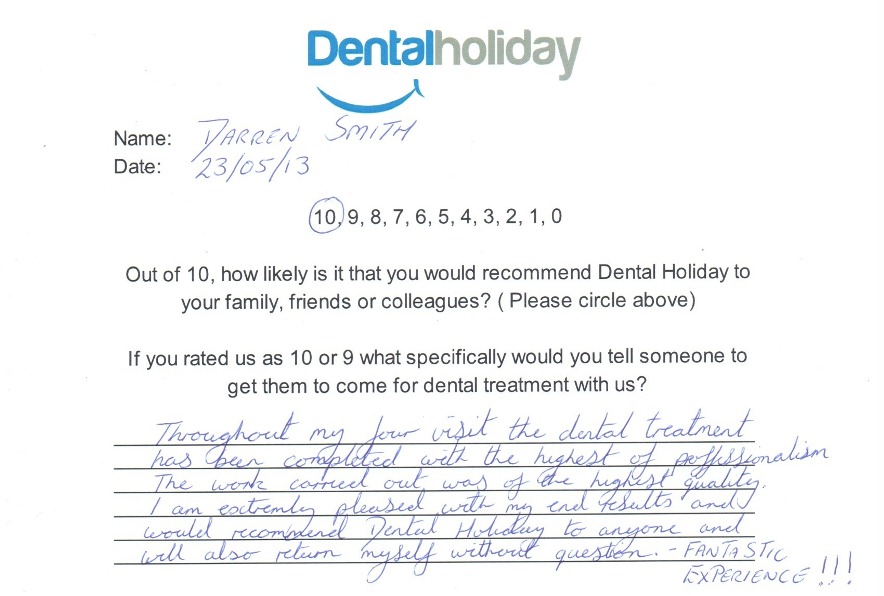 Dentalholiday
Name: DARREN SMITH
Date: 23/05/13
10, 9, 8, 7, 6, 5, 4, 3, 2, 1, 0
Out of 10, how likely is it that you would recommend Dental Holiday to
your family, friends or colleagues? ( Please circle above)
If you rated us as 10 or 9 what specifically would you tell someone to
get them to come for dental treatment with us?
Throughout my four visit the dental treatment
has been completed with the highest of proffissionalism
The work carried out was of the highest quality.
I am extremly pleased with my end results and
would recommend Dental Holiday to anyone and
will also return myself without question. - FANTASTIC
EXPERIENCE !!!